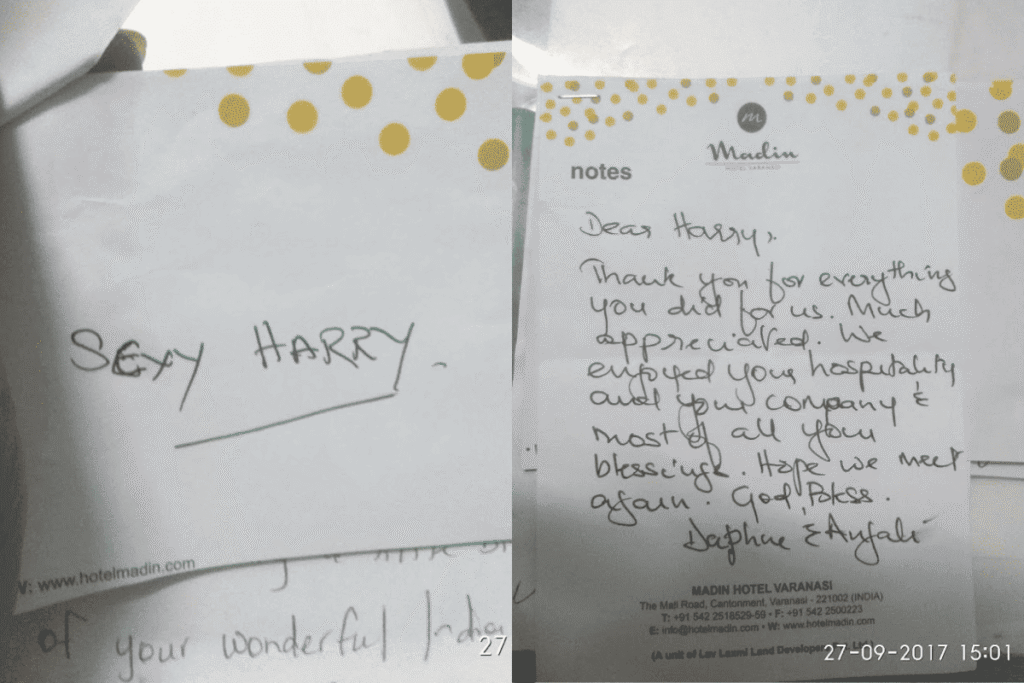 SEXY HARRY.
W: www.hotelmadin.com
of your wonderful India
27
m
Madin
HOTEL VARANASI
notes
Dear Harry,
Thank you for everything
you did for us. Much
appreciated. We
enjoyed your hospitality
and your company &
most of all your
blessings. Hope we meet
again. God Bless.
Daphne & Anjali
MADIN HOTEL VARANASI
The Mall Road, Cantonment, Varanasi - 221002 (INDIA)
T: +91 542 2518529-59 • F: +91 542 2500223
E: info@hotelmadin.com • W: www.hotelmadin.com
(A unit of Lav Laxmi Land Develope
27-09-2017 15:01